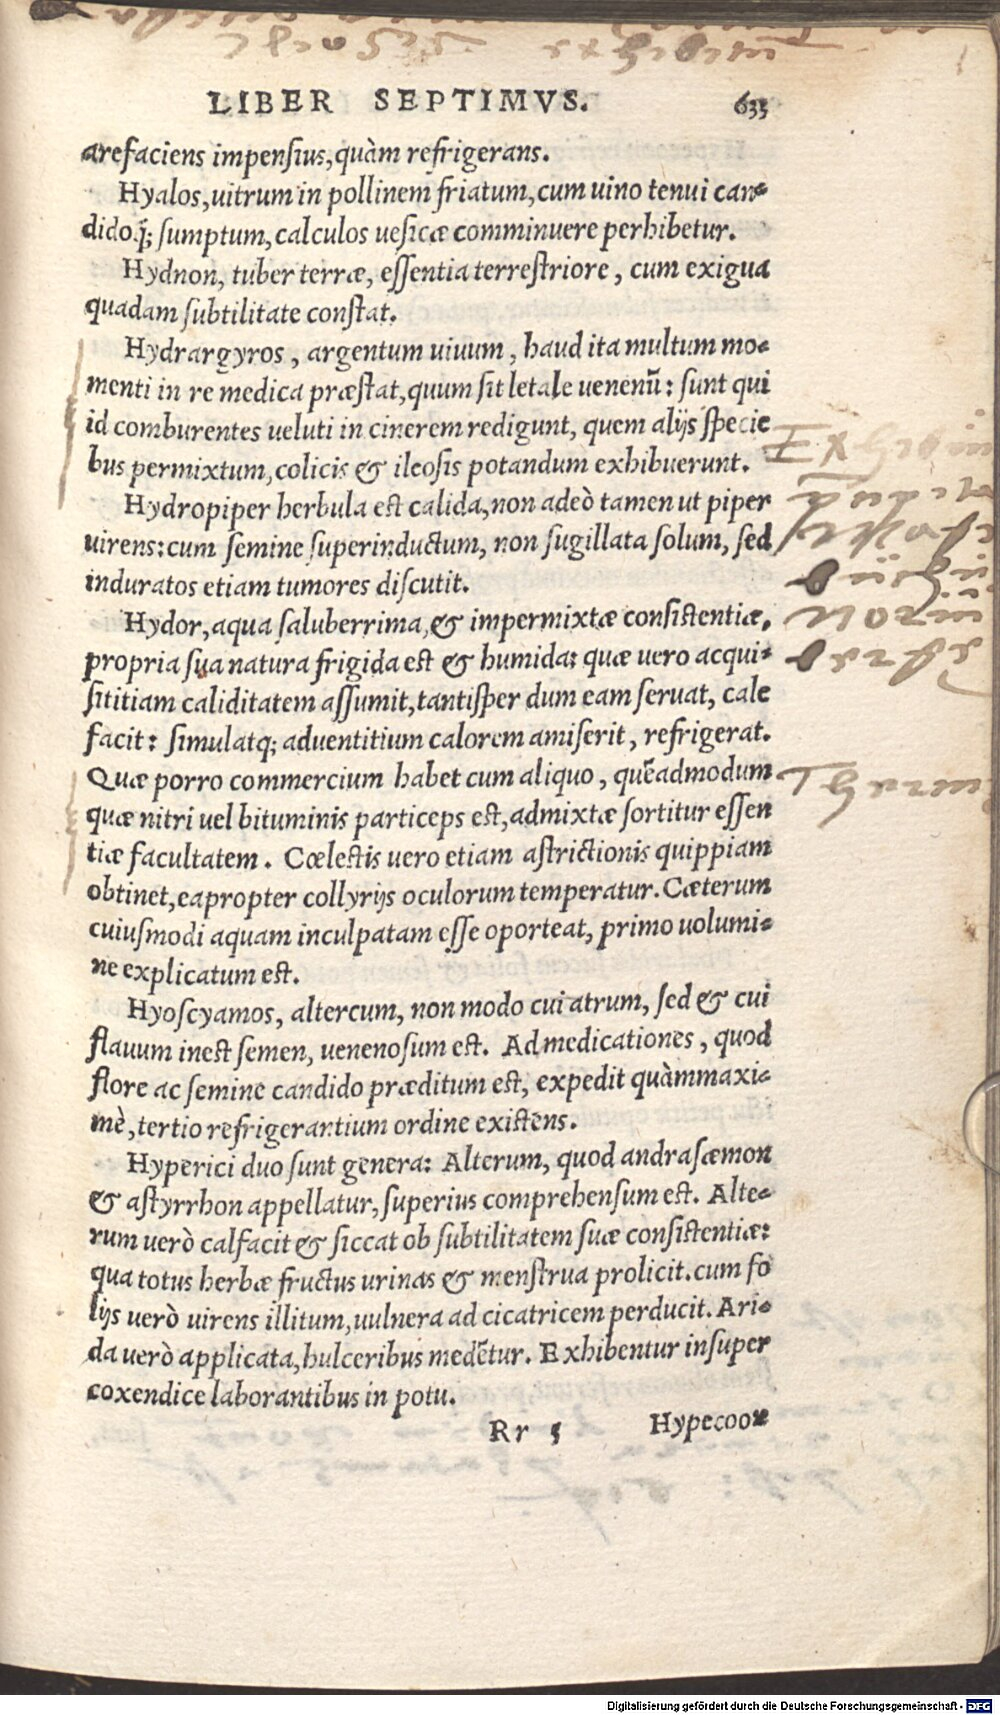 LIBER SEPTIMVS. 633
arefaciens impensius, quàm refrigerans.
Hyalos, uitrum in pollinem friatum, cum uino tenui can-
didoq́; sumptum, calculos uesicæ comminuere perhibetur.
Hydnon, tuber terræ, essentia terrestriore, cum exigua
quadam subtilitate constat.
Hydrargyros, argentum uiuum, haud ita multum mo-
menti in re medica præstat, quum sit letale uenenū: sunt qui
id comburentes ueluti in cinerem redigunt, quem alijs specie
bus permixtum, colicis & ileosis potandum exhibuerunt.
Hydropiper herbula est calida, non adeò tamen ut piper
uirens: cum semine superinductum, non sugillata solum, sed
induratos etiam tumores discutit.
Hydor, aqua saluberrima, & impermixtæ consistentiæ,
propria sua natura frigida est & humida: quæ vero acqui-
sititiam caliditatem assumit, tantisper dum eam seruat, cale
facit: simulatq; aduentitium calorem amiserit, refrigerat.
Quæ porro commercium habet cum aliquo, quēadmodum
quæ nitri uel bituminis particeps est, admixtæ sortitur essen
tiæ facultatem. Cœlestis uero etiam astrictionis quippiam
obtinet, eapropter collyrijs oculorum temperatur. Cæterum
cuiusmodi aquam inculpatam esse oporteat, primo uolumi-
ne explicatum est.
Hyoscyamos, altercum, non modo cui atrum, sed & cui
flauum inest semen, uenenosum est. Ad medicationes, quod
flore ac semine candido præditum est, expedit quàm maxi-
mè, tertio refrigerantium ordine existens.
Hyperici duo sunt genera: Alterum, quod andrasæmon
& astyrrhon appellatur, superius comprehensum est. Alte-
rum uerò calfacit & siccat ob subtilitatem suæ consistentiæ:
qua totus herbæ fructus urinas & menstrua prolicit. cum fo
lijs uerò uirens illitum, uulnera ad cicatricem perducit. Ari-
da uerò applicata, hulceribus medētur. Exhibentur insuper
coxendice laborantibus in potu.
Rr 5 Hypecoon
Digitalisierung gefördert durch die Deutsche Forschungsgemeinschaft - DFG